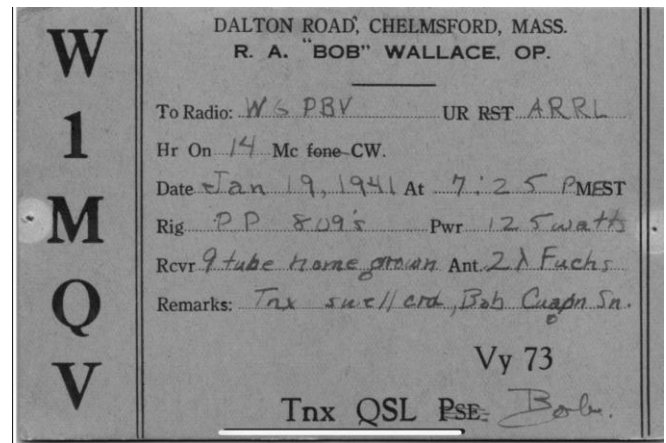 W1MQV
DALTON ROAD, CHELMSFORD, MASS.
R. A. "BOB" WALLACE, OP.
To Radio: W6PBV UR RST ARRL
Hr On 14 Mc fone CW.
Date Jan 19, 1941 At 7:25 PM EST
Rig PP 809's Pwr 125 watts
Rcvr 9 tube home grown Ant. 2λ Fuchs
Remarks: Tnx swell crd, Bob Cuagn Sn.
Vy 73
Tnx QSL PSE Bob.